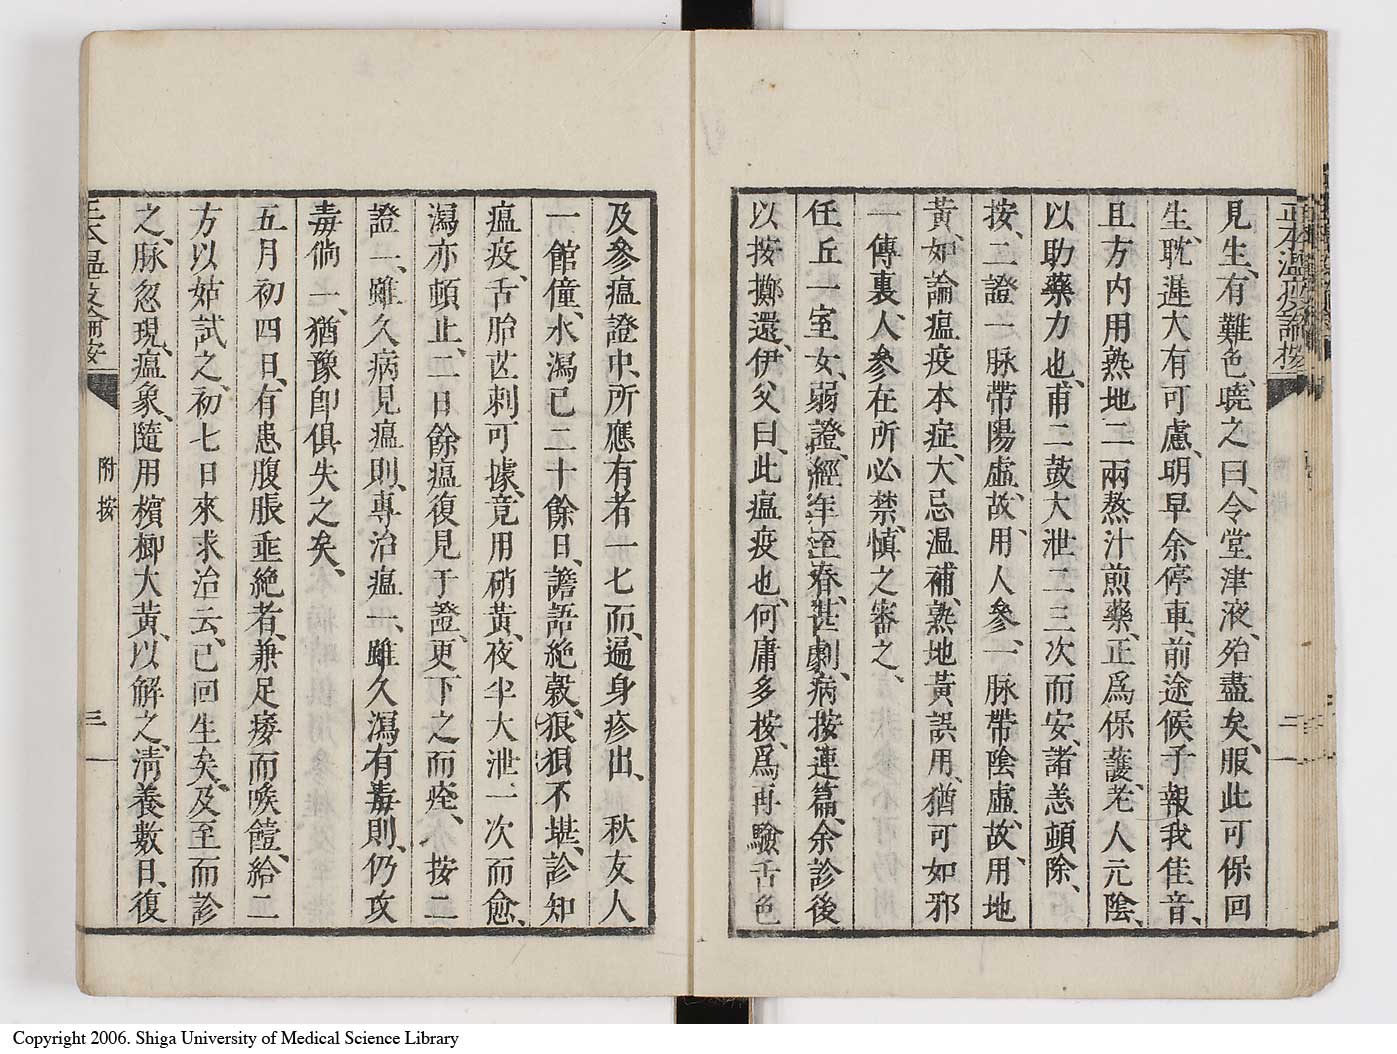 正本溫疫論按
二
見生、有難色、曉之曰、令堂津液、殆盡矣、服此可保回
生、耽遲大有可慮、明早余停車、前途候子報我佳音、
且方內用熟地二兩熬汁煎藥、正爲保護、老人元陰、
以助藥力也、甫二鼓大泄二三次而安、諸恙頓除、
按、二證一脉帶陽虛、故、用人參、一脉帶陰虛、故、用地
黃、如論瘟疫本症、大忌溫補、熟地黃誤用、猶可如邪
一傳裏、人參在所必禁、愼之審之、
任丘一室女、弱證、經年至春、甚劇、病按連篇、余診後
以按擲還、伊父曰、此瘟疫也、何庸多按、爲再驗舌色
及參瘟證中、所應有者一七而、遍身疹出、 秋友人
一館僮、水瀉已二十餘日、譫語絶穀、狼狽不堪、診知
瘟疫、舌胎芒刺可據、竟用硝黃、夜半大泄一次而愈、
瀉亦頓止、二日餘瘟復見于證、更下之而痊、 按二
證一、雖久病見瘟則、專治瘟一、雖久瀉有毒則、仍攻
毒倘一、猶豫卽俱失之矣、
五月初四日、有患腹脹垂絶者、兼足痿而喉饐、給二
方以姑試之、初七日來求治云、已回生矣、及至而診
之、脉忽現、瘟象、隨用檳榔大黃、以解之、淸養數日、復
正本瘟疫論按
附按
三
Copyright 2006. Shiga University of Medical Science Library